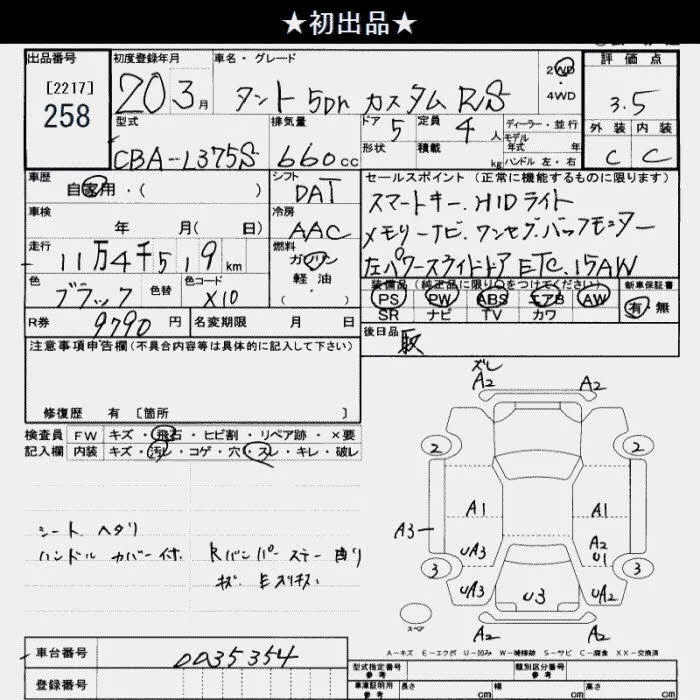 ★初出品★
出品番号
[2217]
258
初度登録年月
20 3月
車名・グレード
タント 5Dr カスタム R/S
2WD
・
4WD
評価点
3.5
外装 内装
C C
型式
CBA-L375S
排気量
660cc
ドア 5
定員 4人
形状
積載 kg
ディーラー・並行
モデル
年式 年
ハンドル 左・右
車歴
自家用・( )
シフト
DAT
セールスポイント (正常に機能するものに限ります)
スマートキー、HIDライト
メモリーナビ、ワンセグ、バックモニター
左パワースライドドア ETC、15AW
車検
年 月( 日)
冷房
AAC
走行
11万4千519km
燃料
ガソリン
軽油
( ・ )
色
ブラック
色替
色コード
X10
装備品 (純正品に限り〇をつけてください)
PS PW ABS エアB AW
SR ナビ TV カワ
新車保証書
有 無
R券
9790円
名変期限 月 日
後日品
取
注意事項申告欄(不具合内容等は具体的に記入して下さい)
修復歴 有 [箇所 ]
検査員 FW キズ・飛石・ヒビ割・リペア跡・×要
記入欄 内装 キズ・汚レ・コゲ・穴・スレ・キレ・破レ
シート ヘタリ
ハンドル カバー付、 Rバンパー ステー 曲り
ズレ
A2 A2
2 2
A1 A1
A3
A2
UA3 U1
3 3
UA3 U3 UA2
A2 A2
スペア
A-キズ E-エクボ U-凹み W-補修跡 S-サビ C-腐食 XX-交換済
車台番号
0035354
登録番号
型式指定番号
参考
類別区分番号
参考
車庫証明用
参考
長さ cm 幅 cm 高さ cm